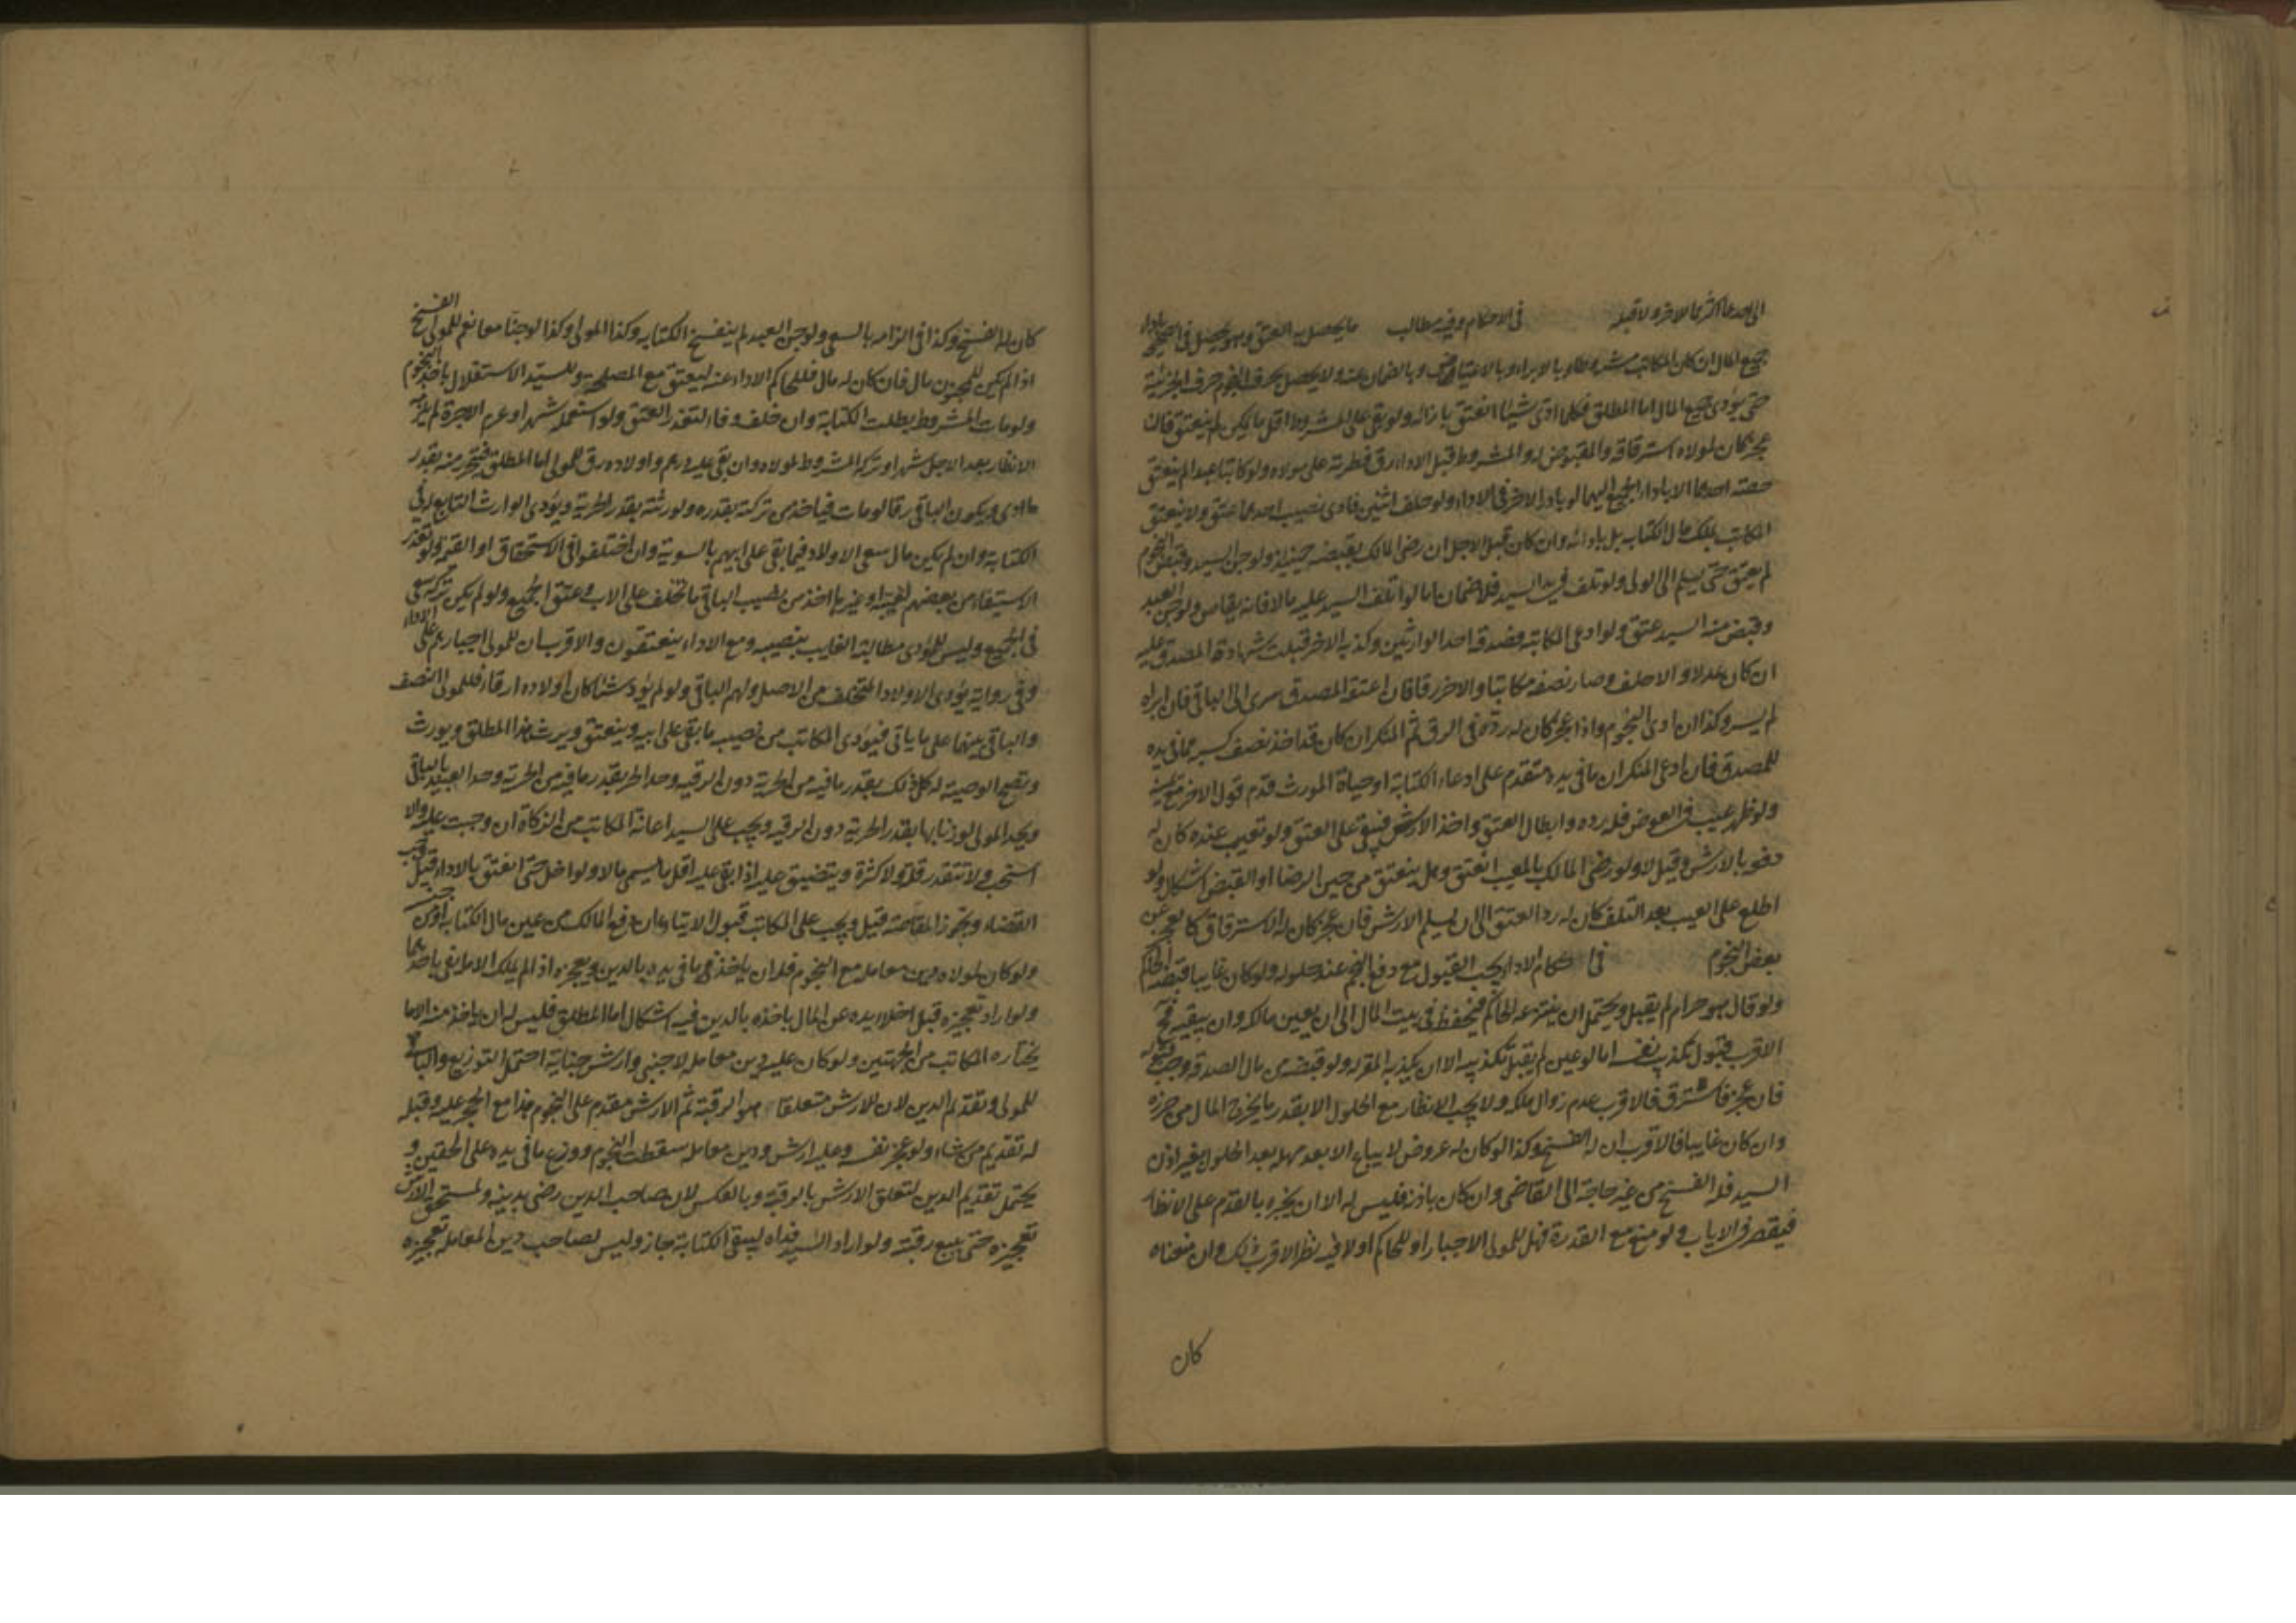 الى احدهما اكثر ما لا قبله في الاحكام وفيه مطالب ما يحصل به العتق وهو يحصل في الصحيح باداء
جميع المال ان كان المكاتب مشروطا وبالابراء وبالاعتياض وبالضمان عنه ولا يحصل بصرف النجوم حرف الجزئية
حتى يؤدى جميع المال اما المطلق فكلما ادى شيئا انعتق بازائه ولو بقى على المشروط اقل ما يكون لم ينعتق فان
عجز كان لمولاه استرقاقه والمقبوض له والمشروط قبل الاداء رق فطرته على مولاه ولو كاتبا عبدا لم ينعتق
حصته احدهما الا باداء الجميع اليهما لو بادر الاخر في الاداء ولو خلف اثنين فادى نصيب احدهما عتق ولا ينعتق
المكاتب بملك مال الكتابة بل بادائه وان كان قبل الاجل ان رضى المالك بقبضه حينئذ ولو جن السيد وقبض النجوم
لم يعتق حتى يسلم الى الولى ولو تلف في يد السيد فلا ضمان اما لو اتلف السيد عليه مالا فانه يقاص ولو جن العبد
وقبض منه السيد عتق ولو ادعى المكاتبة فصدقه احد الوارثين وكذبه الاخر قبلت شهادة المصدق عليه
ان كان عدلا والا حلف وصار نصفه مكاتبا والاخر رقا فان اعتقه المصدق سرى الى الباقى فان ابراه
لم يسر وكذا ان ادى النجوم واذا عجز كان له رده في الرق ثم المنكر ان كان قد اخذ نصف كسبه فما في يده
للمصدق فان ادعى المنكر ان ما في يده متقدم على ادعاء الكتابة او حياة المورث قدم قول الاخر مع يمينه
ولو ظهر عيب في العوض فله رده وابطال العتق واخذ الارش فيبقى على العتق ولو تعيب عنده كان له
دفعه بالارش وقيل لا ولو رضى المالك بالمعيب انعتق وهل ينعتق من حين الرضا او القبض اشكال ولو
اطلع على العيب بعد التلف كان له رد العتق الى ان يسلم الارش فان عجز كان له الاسترقاق كما لو عجز عن
بعض النجوم في احكام الاداء يجب القبول مع دفع النجم عند حلوله ولو كان غايبا قبضه الحاكم
ولو قال هو حرام لم يقبل ويحتمل ان ينتزعه الحاكم فيحفظه في بيت المال الى ان يعين مالكه وان يبقيه
الاقرب قبول تكذيب نفسه اما لو عين لم يقبل تكذيبه الا ان يكذبه المقر له ولو قبضه من مال الصدقة وجب قبوله
فان عجز فاسترق فالاقرب عدم زوال ملكه ولا يجب الانظار مع الحلول الا بقدر ما يخرج المال من حرزه
وان كان غايبا فالاقرب ان له الفسخ وكذا لو كان له عروض لا يباع الا بعد مهلة بعد الحلول بغير اذن
السيد فله الفسخ من غير حاجة الى القاضى وان كان باذنه فليس له الا ان يخبره بالقدم على الانظار
فيقصر في الاياب ولو منع مع القدرة فهل للمولى الاجبار او للحاكم اولا فيه نظر الاقرب ذلك وان منعناه
كان
كان له الفسخ وكذا في الزامه بالسعى ولو جن العبد لم ينفسخ الكتابة وكذا المولى وكذا لو جنا معا نعم للمولى الفسخ
اذا لم يكن للمجنون مال فان كان له مال فللحاكم الاداء عنه ليعتق مع المصلحة وللسيد الاستقلال باخذ النجوم
ولو مات المشروط بطلت الكتابة وان خلف وفاء لتعذر العتق ولو استعمله شهرا وغرم الاجرة لم يلزمه
الانظار بعد الاجل شهرا وتركة المشروط لمولاه وان بقى عليه درهم واولاده رق للمولى اما المطلق فيتحرر منه بقدر
ما ادى ويكون الباقى رقا لو مات فياخذ من تركته بقدره ولورثته بقدر الحرية ويؤدى الوارث التابع له في
الكتابة وان لم يكن مال سعى الاولاد فيما بقى على ابيهم بالسوية وان اختلفوا في الاستحقاق او القيمة ولو تعذر
الاستيفاء من بعضهم لغيبة او غيرها اخذ من نصيب الباقى ما تخلف على الاب وعتق الجميع ولو لم يكن تركة سعى
في الجميع وليس للمؤدى مطالبة الغايب بنصيبه ومع الاداء ينعتقون والاقرب ان للمولى اجبارهم على الاداء
وفى رواية يؤدى الاولاد المتخلف من الاصل ولهم الباقى ولو لم يؤد شيئا كان اولاده ارقاء فللمولى النصف
والباقى بينهما على ما ياتى فيؤدى المكاتب من نصيبه ما بقى على ابيه وينعتق ويرث هذا المطلق ويورث
وتصح الوصية له كل ذلك بقدر ما فيه من الحرية دون الرقية وحد الحر بقدر ما فيه من الحرية وحد العبد بالباقى
ويحد المولى لو زنا بها بقدر الحرية دون الرقية ويجب على السيد اعانة المكاتب من الزكاة ان وجبت عليه والا
استحب ولا تتقدر قلة ولا كثرة ويتضيق عليه اذا بقى عليه اقل ما يسمى مالا ولو اخل حتى انعتق بالاداء قيل وجب
القضاء وتجوز المقاصة قيل ويجب على المكاتب قبول الايتاء ان دفع المالك من عين مال الكتابة او من جنسه
ولو كان لمولاه دين معاملة مع النجوم فله ان ياخذ ما في يده بالدين ويعجزه اذا لم يملك الا ما يفى باحدهما
ولو اراد تعجيزه قبل اخلاء يده عن المال باخذه بالدين فيه اشكال اما المطلق فليس له ان ياخذ منه الا ما
يختاره المكاتب من الجهتين ولو كان عليه دين معاملة لاجنبى وارش جناية احتمل التوزيع والباقى
للمولى وتقديم الدين لان للارش متعلقا هو الرقبة ثم الارش مقدم على النجوم هذا مع الحجر عليه وقبله
له تقديم من شاء ولو عجز نفسه وعليه ارش ودين معاملة سقطت النجوم ووزع ما في يده على الحقين و
يحتمل تقديم الدين لتعلق الارش بالرقبة وبالعكس لان صاحب الدين رضى بدينه ولمستحق الارش
تعجيزه حتى يبيع رقبته ولو اراد السيد فداه ليبقى الكتابة جاز وليس لصاحب دين المعاملة تعجيزه